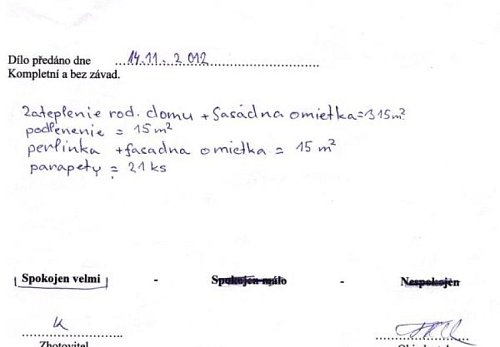 Dílo předáno dne 14.11. 2012
Kompletní a bez závad.
Zateplenie rod. domu + fasádna omietka = 315m²
podlenenie = 15m²
perlinka + fasadna omietka = 15 m²
parapety = 21 ks
Spokojen velmi - Spokojen málo - Nespokojen
Zhotovitel